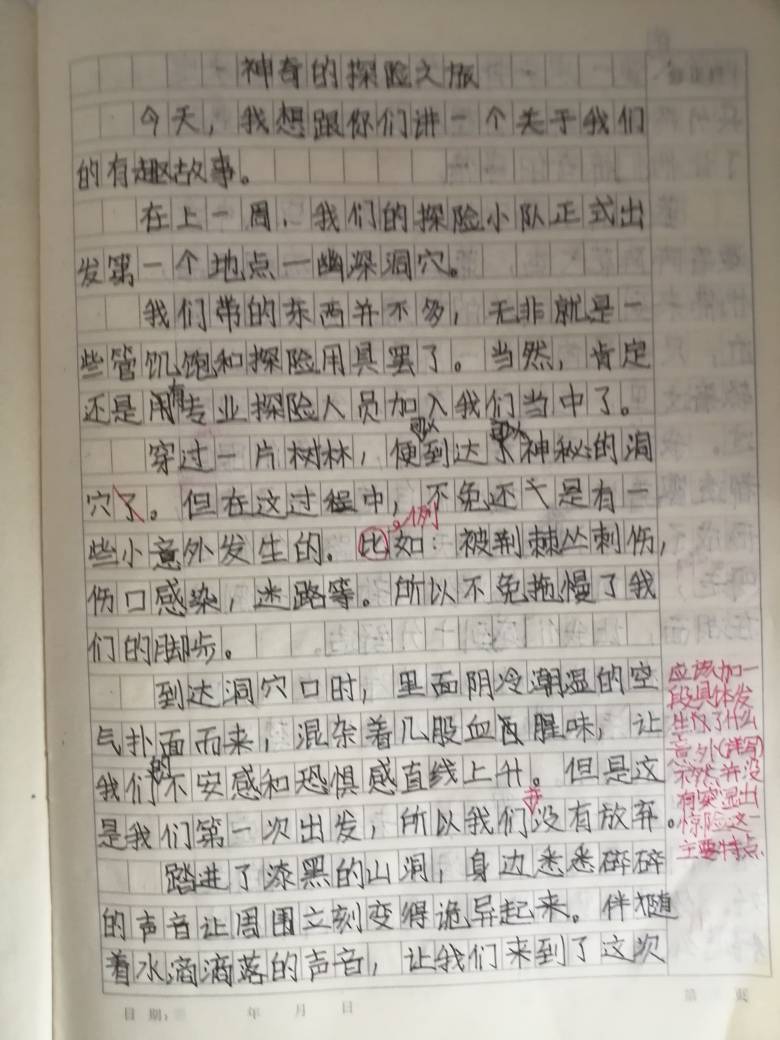 神奇的探险之旅
今天，我想跟你们讲一个关于我们
的有趣故事。
在上一周，我们的探险小队正式出
发第一个地点一幽深洞穴。
我们带的东西并不多，无非就是一
些管饥饱和探险用具罢了。当然，肯定
还是用有专业探险人员加入我们当中了。
穿过一片树林，便到达了神秘的洞
穴了。但在这过程中，不免还是有一
些小意外发生的。比如：被荆棘丛刺伤，
例
伤口感染，迷路等。所以不免拖慢了我
们的脚步。
到达洞穴口时，里面阴冷潮湿的空
气扑面而来，混杂着几股血腥味，让
我们的不安感和恐惧感直线上升。但是这
是我们第一次出发，所以我们并没有放弃。
踏进了漆黑的山洞，身边悉悉碎碎
的声音让周围立刻变得诡异起来。伴随
着水滴滴落的声音，让我们来到了这次
应该加一
段具体发
生了什么
意外(详写)
不然并没
有突显出
惊险这一
主要特点.
日期：
年 月 日
第 页